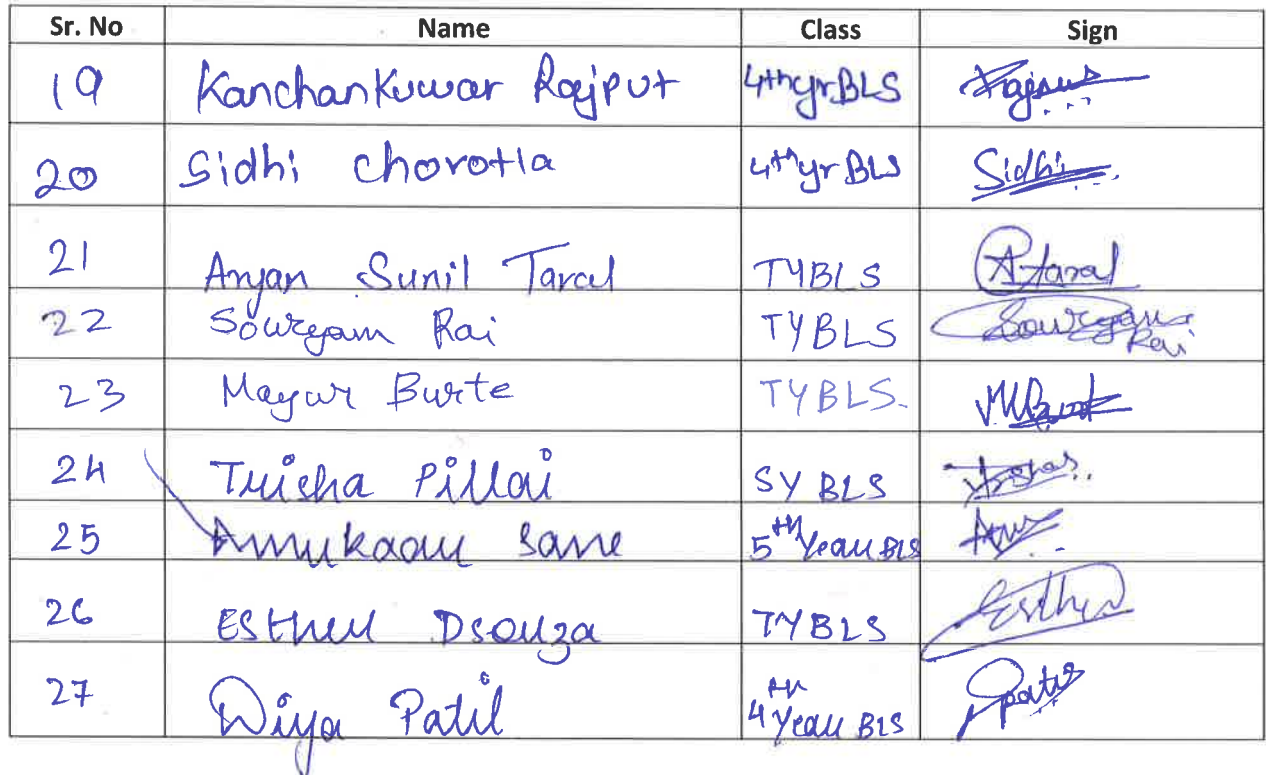 Sr. No Name Class Sign
19 Kanchankuwar Rajput 4th yr BLS Rajput
20 Sidhi Chorotia 4th yr BLS Sidhi
21 Aryan Sunil Taral TYBLS A.Taral
22 Sourgam Rai TYBLS Sourgam Rai
23 Mayur Burte TYBLS.
24 Trisha Pillai SY BLS
25 Sane 5th Year BLS
26 Esther Dsouza TYBLS Esther
27 Diya Patil 4th Year BLS Patil